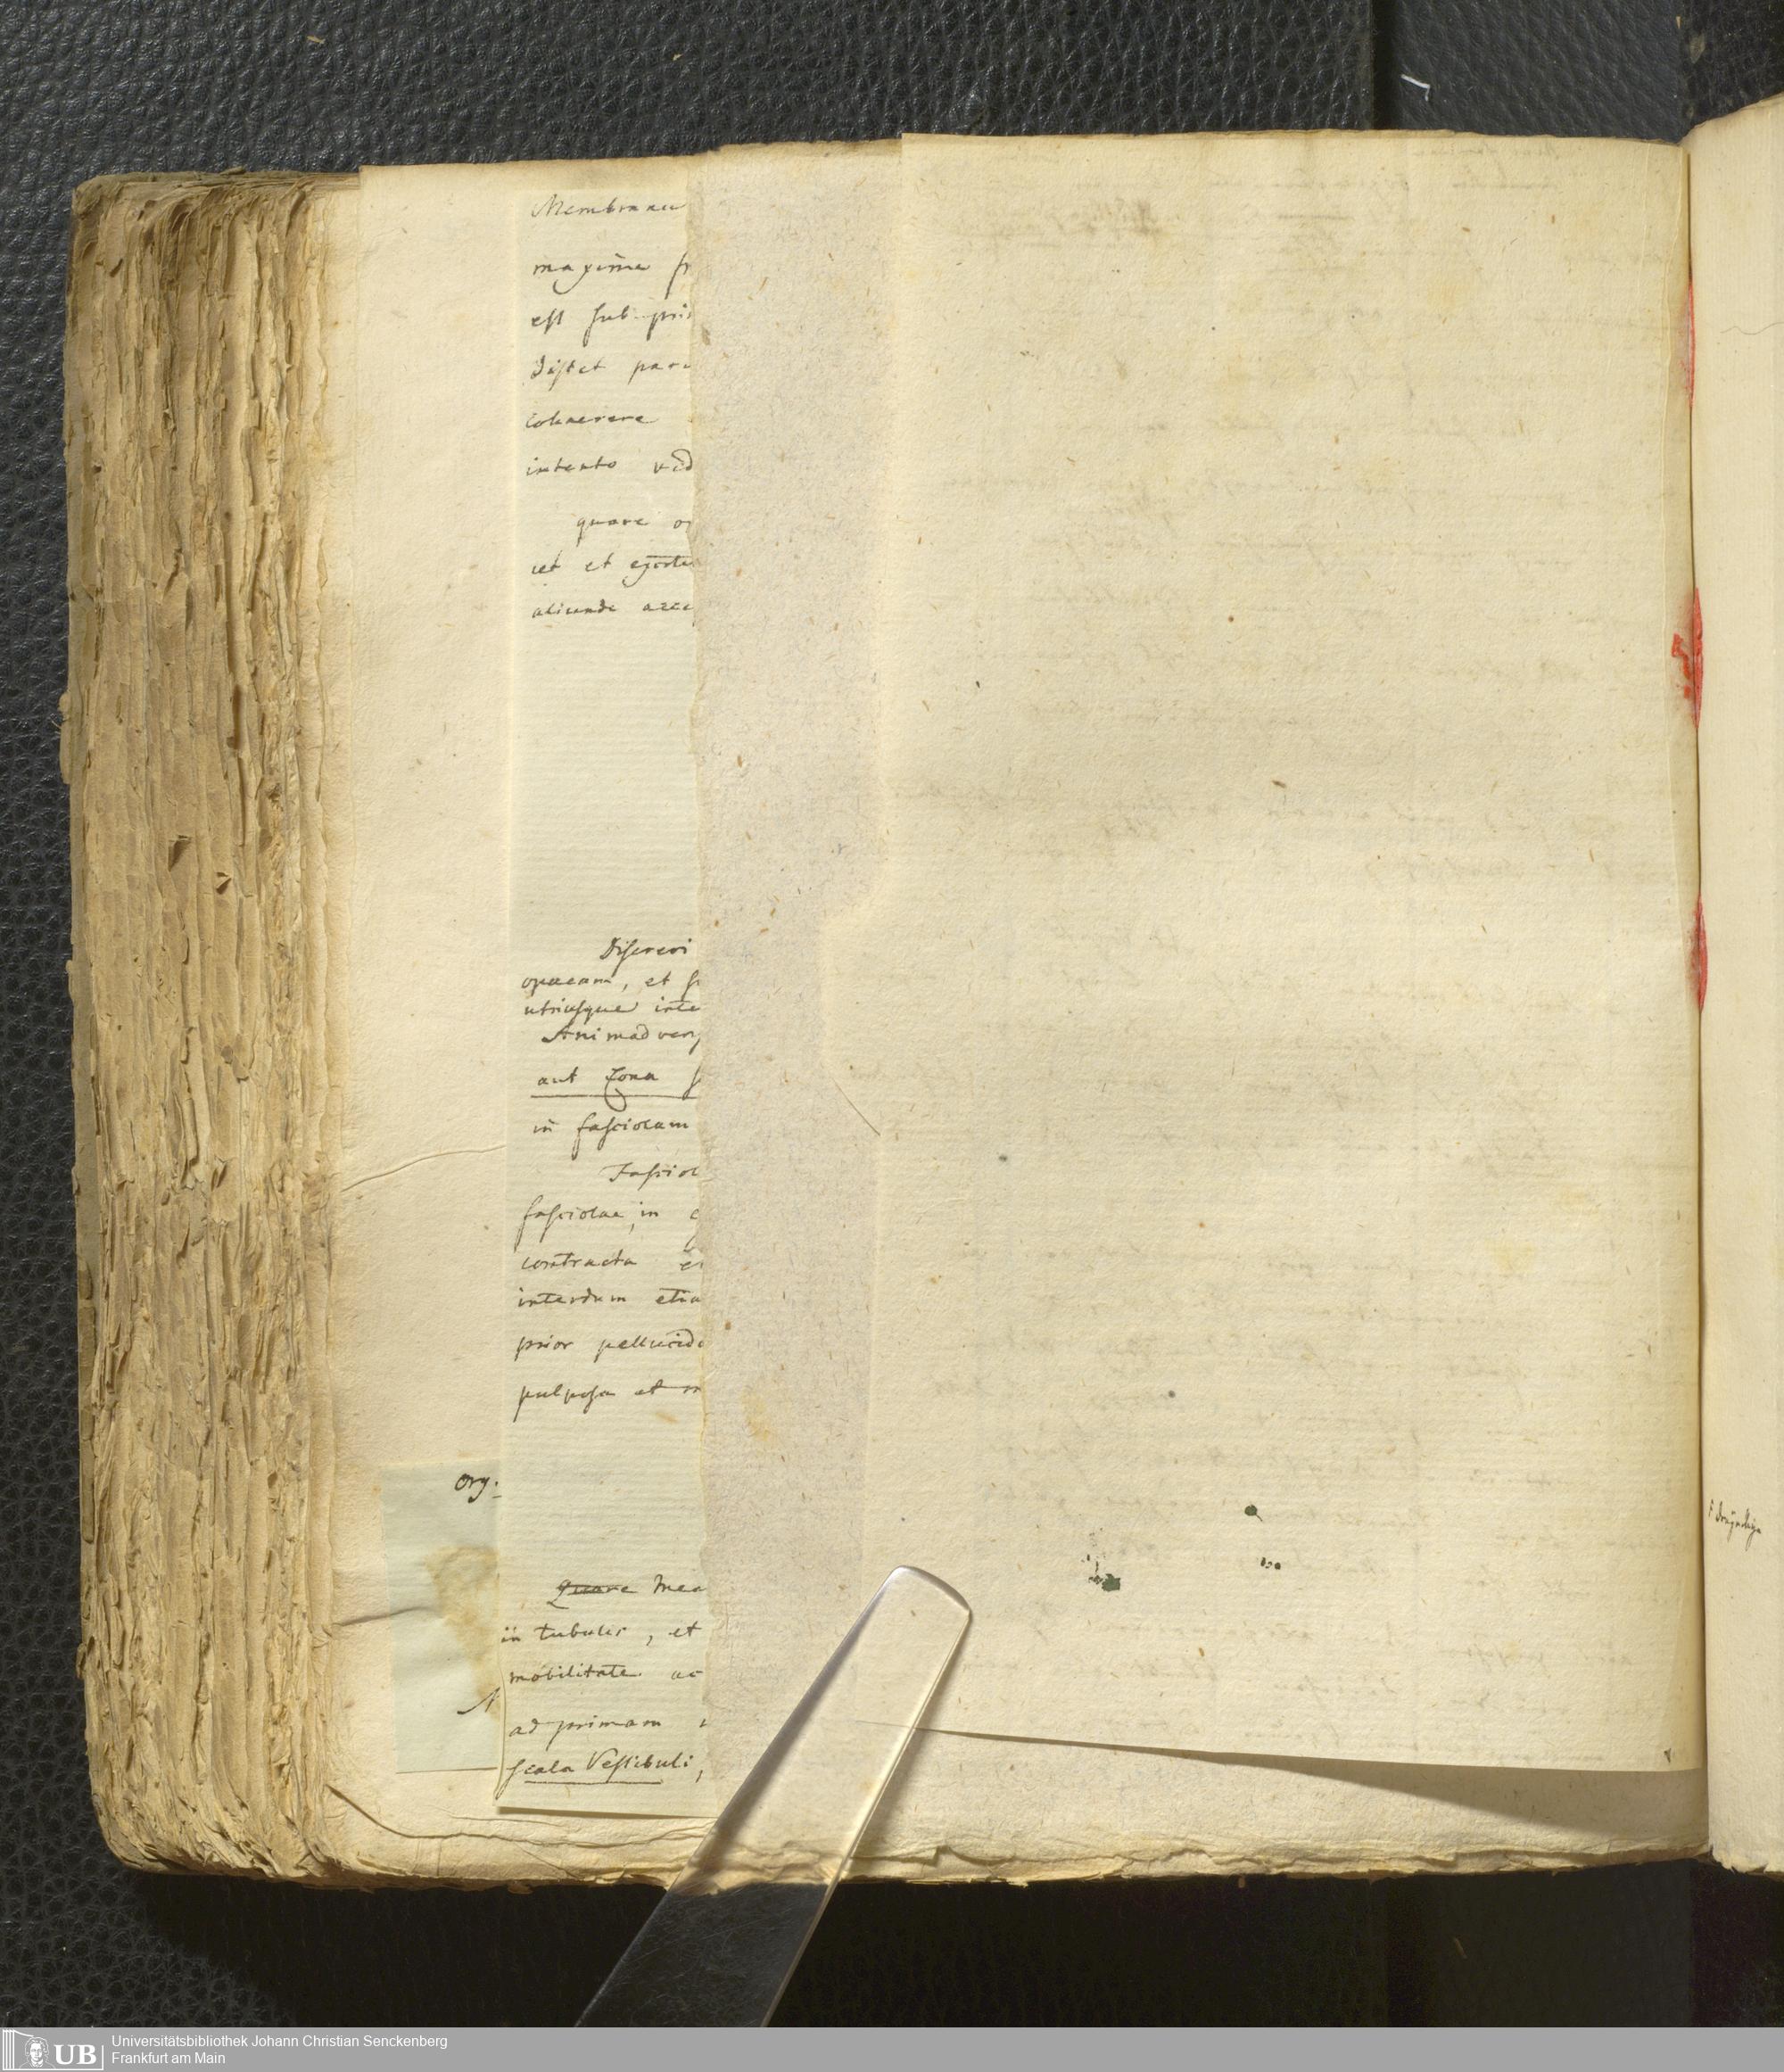 Membranae
maxime fr
est sub pri
distet par
cohaerere
intento vid
quare o
et et exste
aliunde acce
Discrevi
opacam, et s
utriusque inte
Animadver
aut Zona s
in fasciolam
Fasciol
fasciolae, in c
contracta e
interdum etia
prior pellucid
pulposa et m
org.
Quare Mea
in tubulis, et
mobilitate ac
N
ad primam
scala Vestibuli,
UB Universitätsbibliothek Johann Christian Senckenberg
Frankfurt am Main